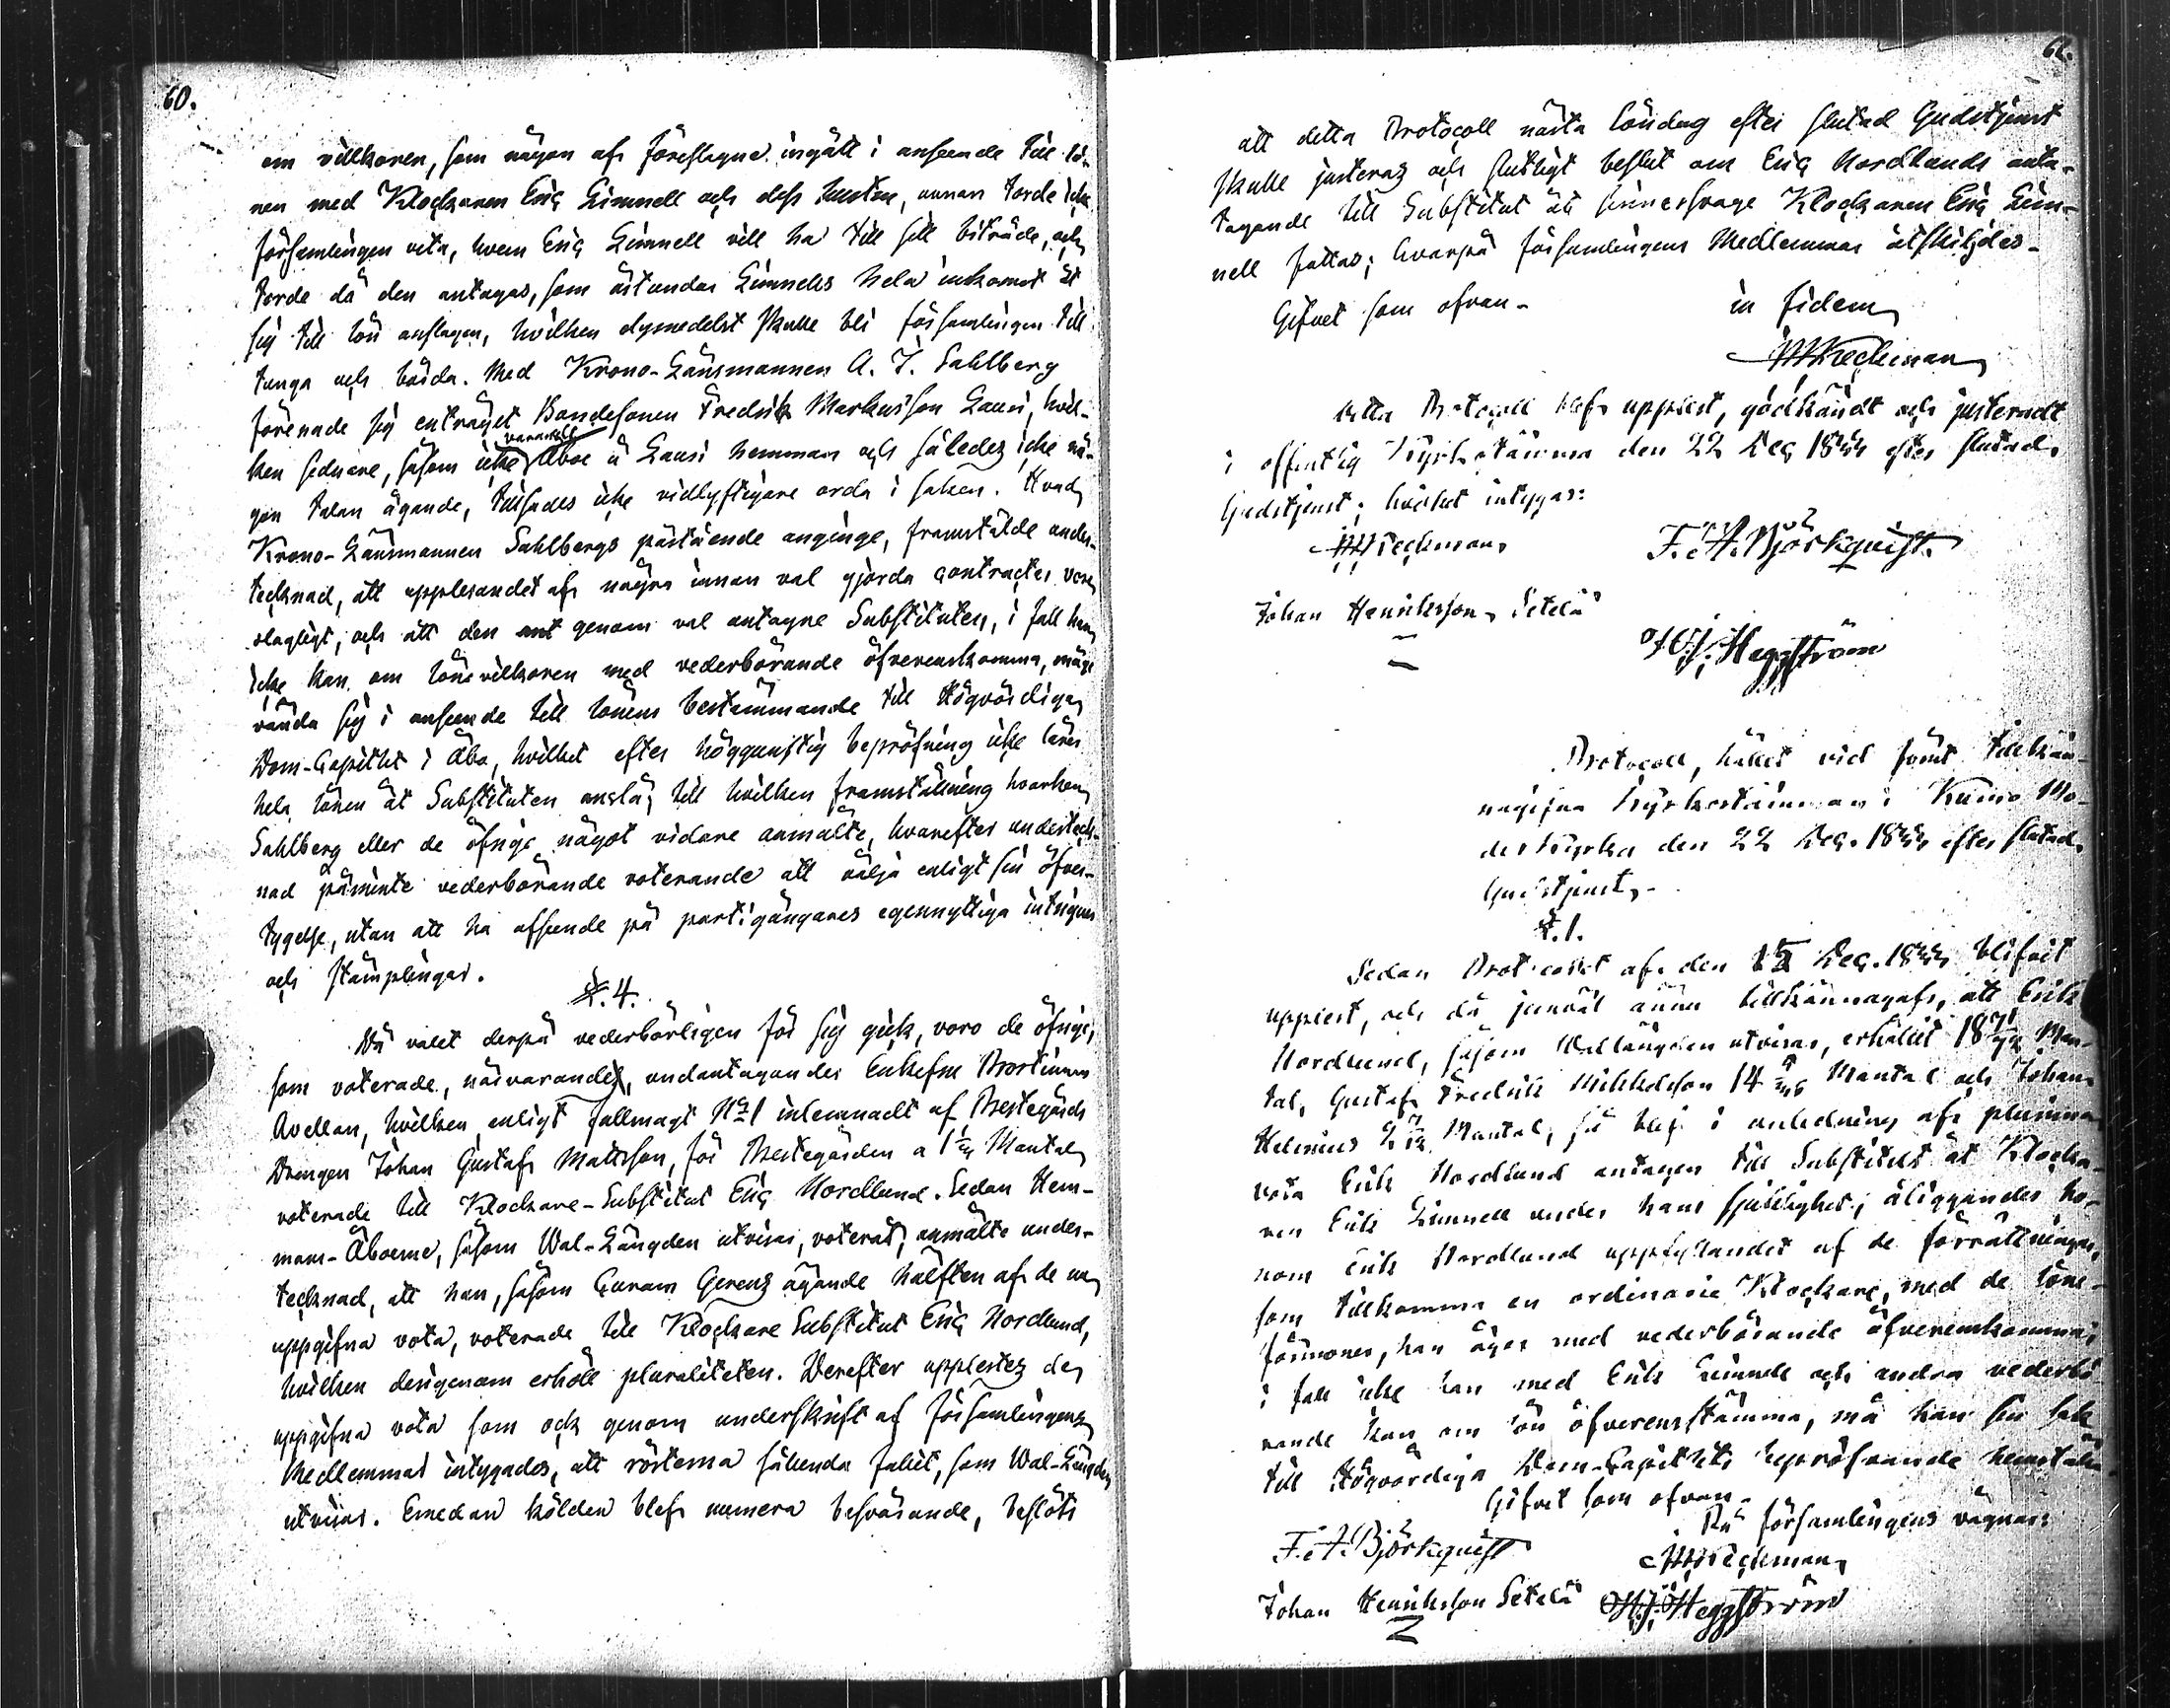 60.
om villkoren, som någon af föreslagne ingått i anseende till lö-
nen med Klockaren Eric Limnell och dess hustru, annan torde icke
församlingen veta, hvem Eric Limnell vill ha till sitt biträde, och
torde då den antagas, som åstundar Limnells hela inkomst åt
sig till lön anslagen, hvilken dymedelst skulle bli församlingen till
tunga och börda. Med Krono-Länsmannen A. J. Sahlberg
förenade sig enträget Bondesonen Fredrik Markusson Lausi, hvil-
ken sednare, såsom icke varande Åboe å Lausi hemman och således icke nå-
gon talan ägande, tillsades icke vidlyftigare orda i saken. Hvad
Krono-Länsmannen Sahlbergs påstående anginge, framstälde under-
tecknad, att uppläsandet af några innan val gjorda contracter vore
olagligt, och att den ant genom val antagne Substituten, i fall han
icke kan om lönevilkoren med vederbörande öfverenskomma, måge
vända sig i anseende till lönens bestämmande till Högvördiga
Dom-Capitlet i Åbo, hvilket efter höggunstig bepröfning icke lärer
hela lönen åt Substituten anslå; till hvilken framställning hvarken
Sahlberg eller de öfriga något vidare anmälte, hvarefter underteck-
nad påminte vederbörande voterande att välja enligt sin öfver-
tygelse, utan att ha afseende på partigängares egennyttiga intriguer
och stämplingar.
§. 4.
Då valet derpå vederbörligen för sig gick, voro de öfrige,
som voterade, närvarandes, undantagandes Enkefru Prostinnan
Avellan, hvilken enligt fullmagt N:o 1 inlemnadt af Prestegårds
Drengen Johan Gustaf Mattsson, för Prestegården a 1 Mantal
voterade till Klockare-Substitut Eric Nordlund. Sedan Hem-
mans-Åboerne, såsom Wal-Längden utvisar, voterat, anmälte under-
tecknad, att han, såsom Curam Gerens ägande hälften af de nu
uppgifna vota, voterade till Klockare Substitut Eric Nordlund,
hvilken derigenom erhöll pluraliteten. Derefter upplästes de
uppgifna vota som ock genom underskrift af församlingens
Medlemmar intygades, att rösterna sålunda fallit, som Wal-Längden
utvisar. Emedan kölden blef numera besvärande, beslöts
61.
att detta Protocoll nästa Söndag efter slutad Gudstjenst
skulle justeras och slutligt beslut om Eric Nordlunds anta-
gande till Substitut åt sinnessvage Klockaren Eric Lim-
nell fattas; hvarpå församlingens Medlemmar åtskiljdes-
Gifvet som ofvan- in fidem
Detta Protocoll blef uppläst, godkändt och justeradt
i offentlig Kyrkostämma den 22 Dec 1844 efter slutad
Gudstjenst; hvilket intygas:
F. A. Björkquist.
Johan Henriksson Setelä
H. J. Heggström
Protocoll, hållit vid förut tillkän-
nagifven Kyrkostämma i Kumo Mo-
derkyrka den 22 Dec. 1844 efter slutad
Gudstjenst.-
§. 1.
Sedan Protocollet af den 15 Dec. 1844 blifvit
uppläst, och då jemväl ännu tillkännagafs, att Erik
Nordlund, såsom Wallängden utvisar, erhållit 18 Man-
tal, Gustaf Fredrik Mikkelsson 14 Mantal och Johan
Helenius 2 Mantal, så blef i anledning af plurima
vota Erik Nordlund antagen till Substitut åt Klocka-
ren Erik Limnell under hans sjuklighet; åliggandes ho-
nom Erik Nordlund uppfyllandet af de förrättningar,
som tillkomma en ordinarie Klockare, med de löne-
förmoner, han äger med vederbörande öfverenskomma;
i fall icke han med Erik Limnell och andra vederbö-
rande kan om lön öfverensstämma, må han sin sak
till Högvördiga Dom-Capitlets bepröfvande hemställa
Gifvet som ofvan-
På församlingens vägnar:
F. A. Björkquist
Johan Henriksson Setelä H. J. Heggström